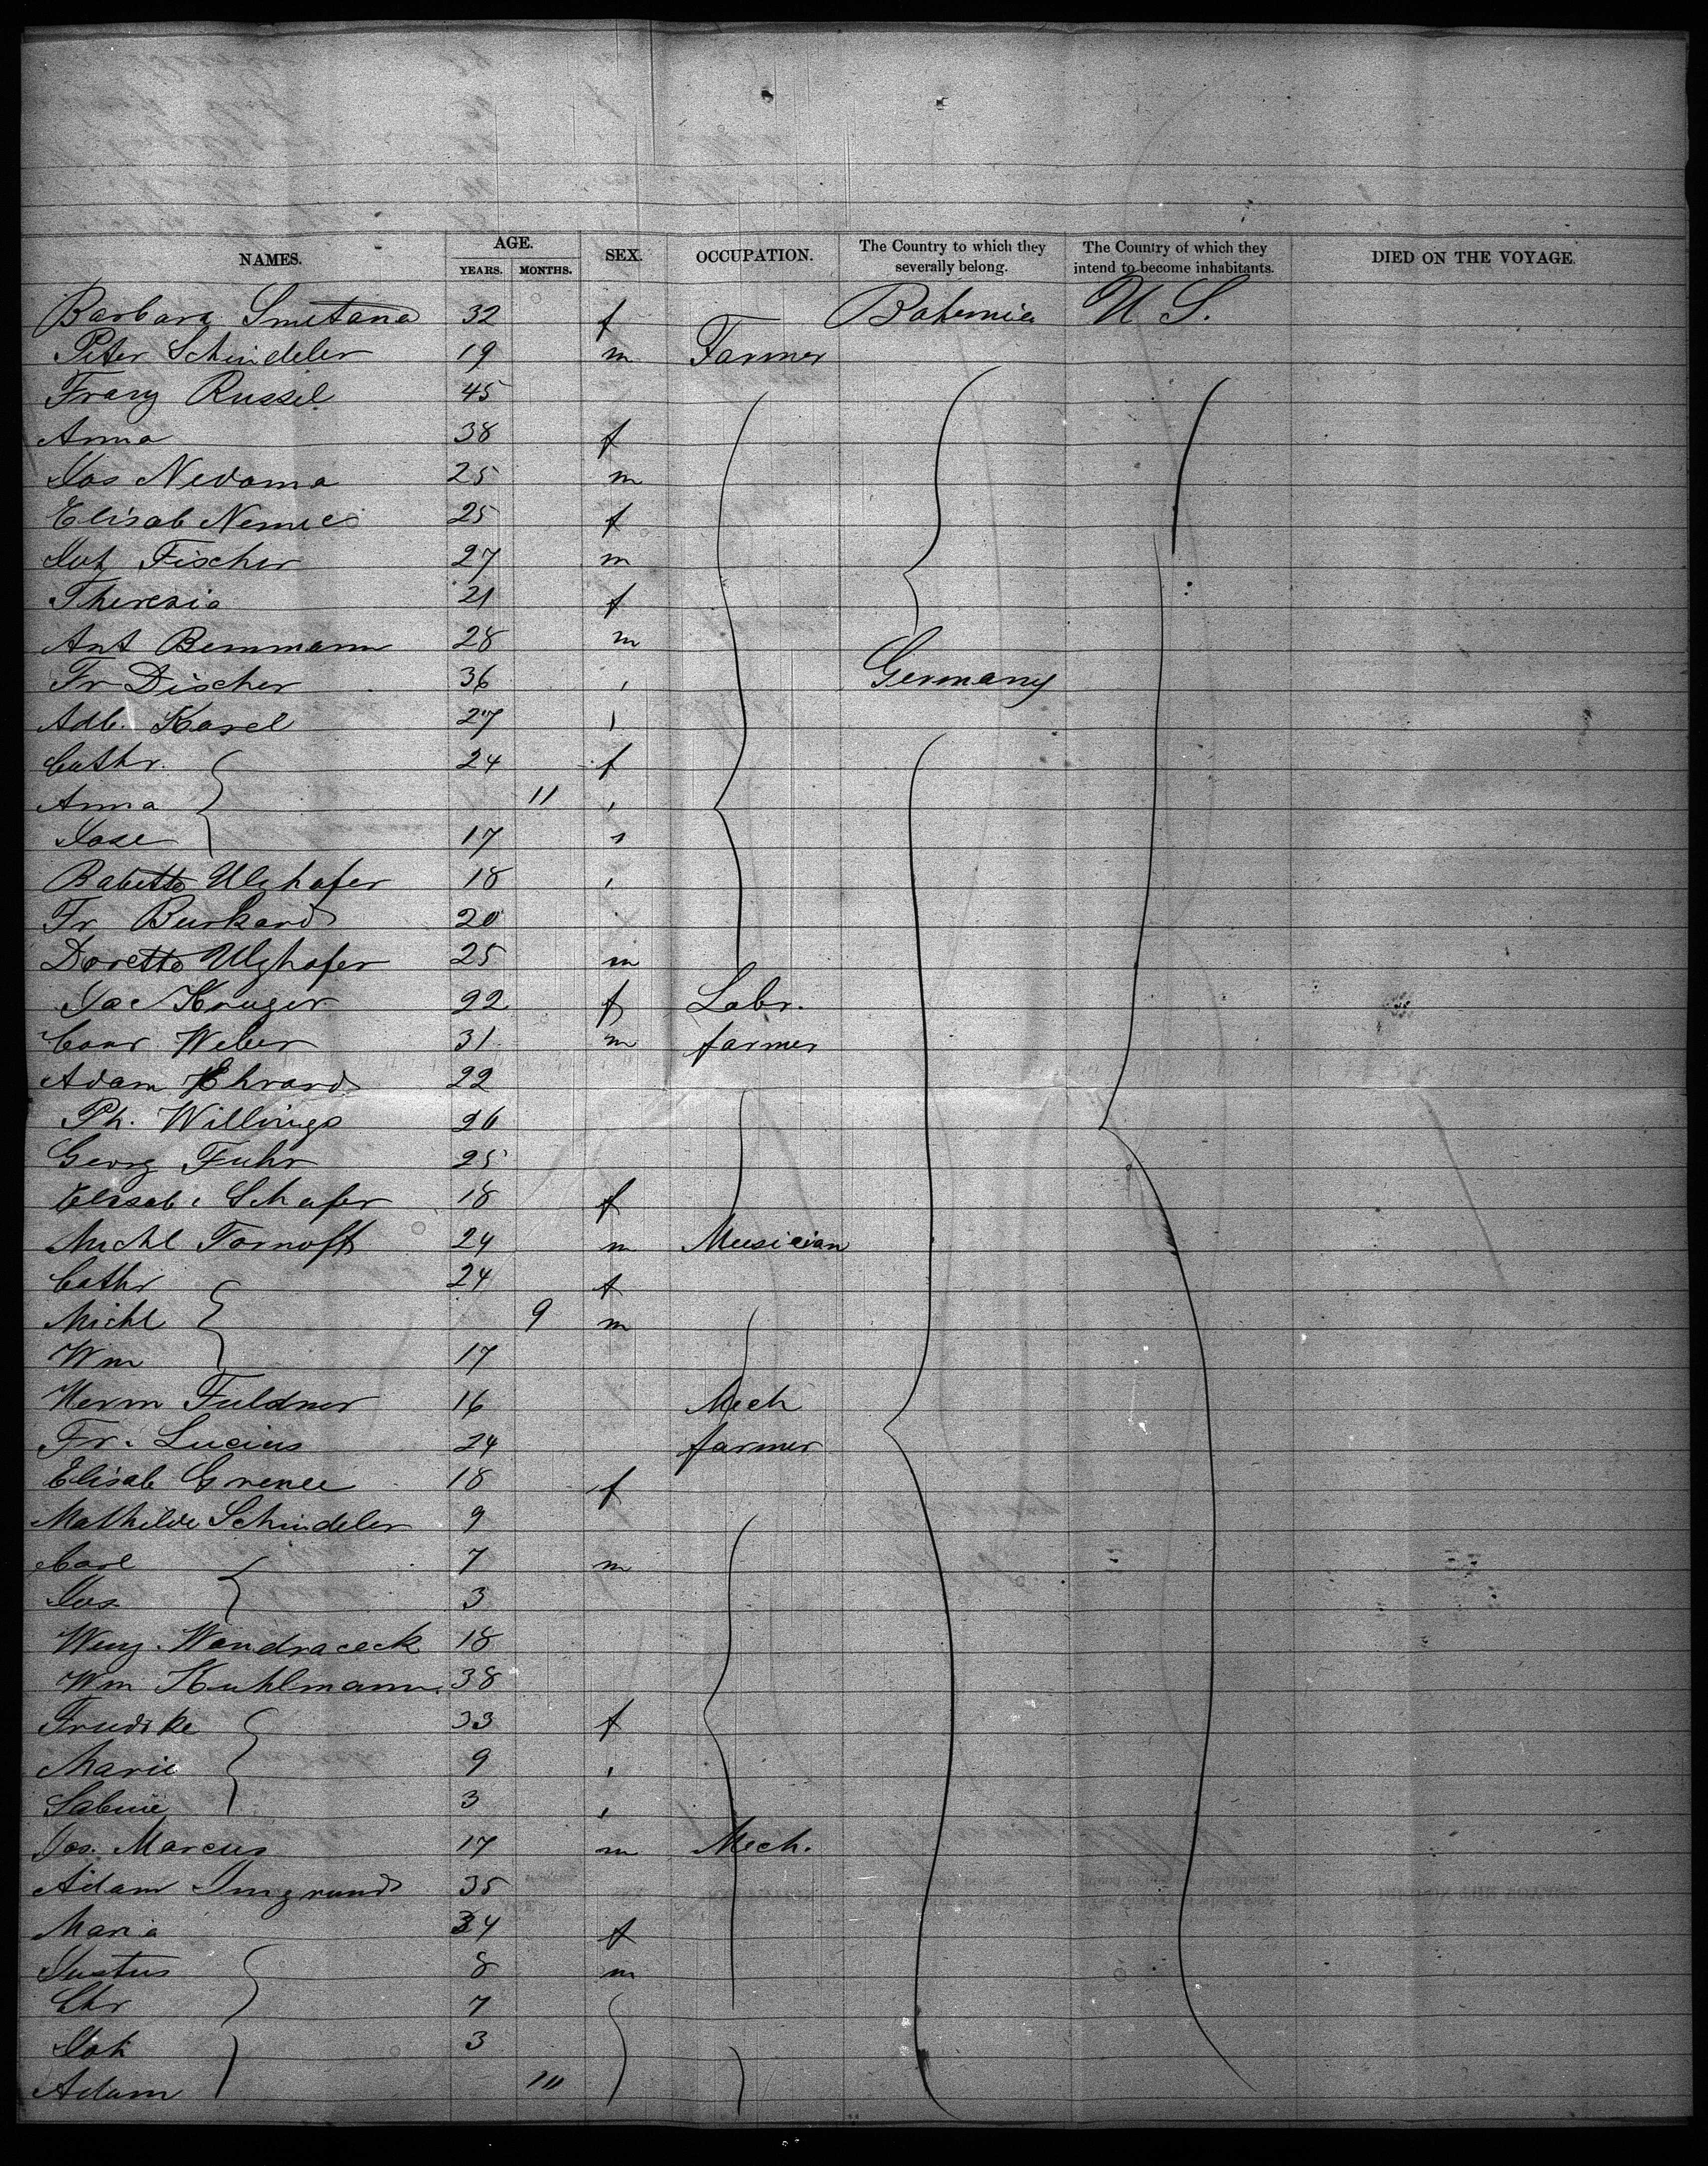 NAMES. AGE. YEARS. MONTHS. SEX. OCCUPATION. The Country to which they severally belong. The Country of which they intend to become inhabitants. DIED ON THE VOYAGE.
Barbara Smetana 32 f Bohemia U S.
Peter Schindeler 19 m Farmer
Franz Russel 45
Anna 38 f
Jos Nedoma 25 m
Elisab Nemec 25 f
Joh Fischer 27 m
Theresia 21 f
Ant Bemmann 28 m
Fr Discher 36 Germany
Adb. Karel 27
Cathr. 24 f
Anna 11
Jose 17
Babette Ulzhafer 18
Fr Burkard 20
Dorette Ulzhafer 25 m
Jac Kruger 22 f Labr.
Conr Weber 31 m farmer
Adam Ehrard 22
Ph. Willings 26
Georg Fuhr 25
Elisab. Schafer 18 f
Michl Tornoff 24 m Musician
Cathr 24 f
Michl 9 m
Wm 17
Herm Fuldner 16 Mech
Fr. Lucius 24 farmer
Elisab Grenee 18 f
Mathilde Schindeler 9
Carl 7 m
Jos 3
Wenz. Wondraceck 18
Wm Kuhlmann 38
Fredrike 33 f
Marie 9
Sabine 3
Jos. Marcus 17 m Mech.
Adam Imgrund 35
Maria 34 f
Justus 8 m
Chr 7
Joh 3
Adam